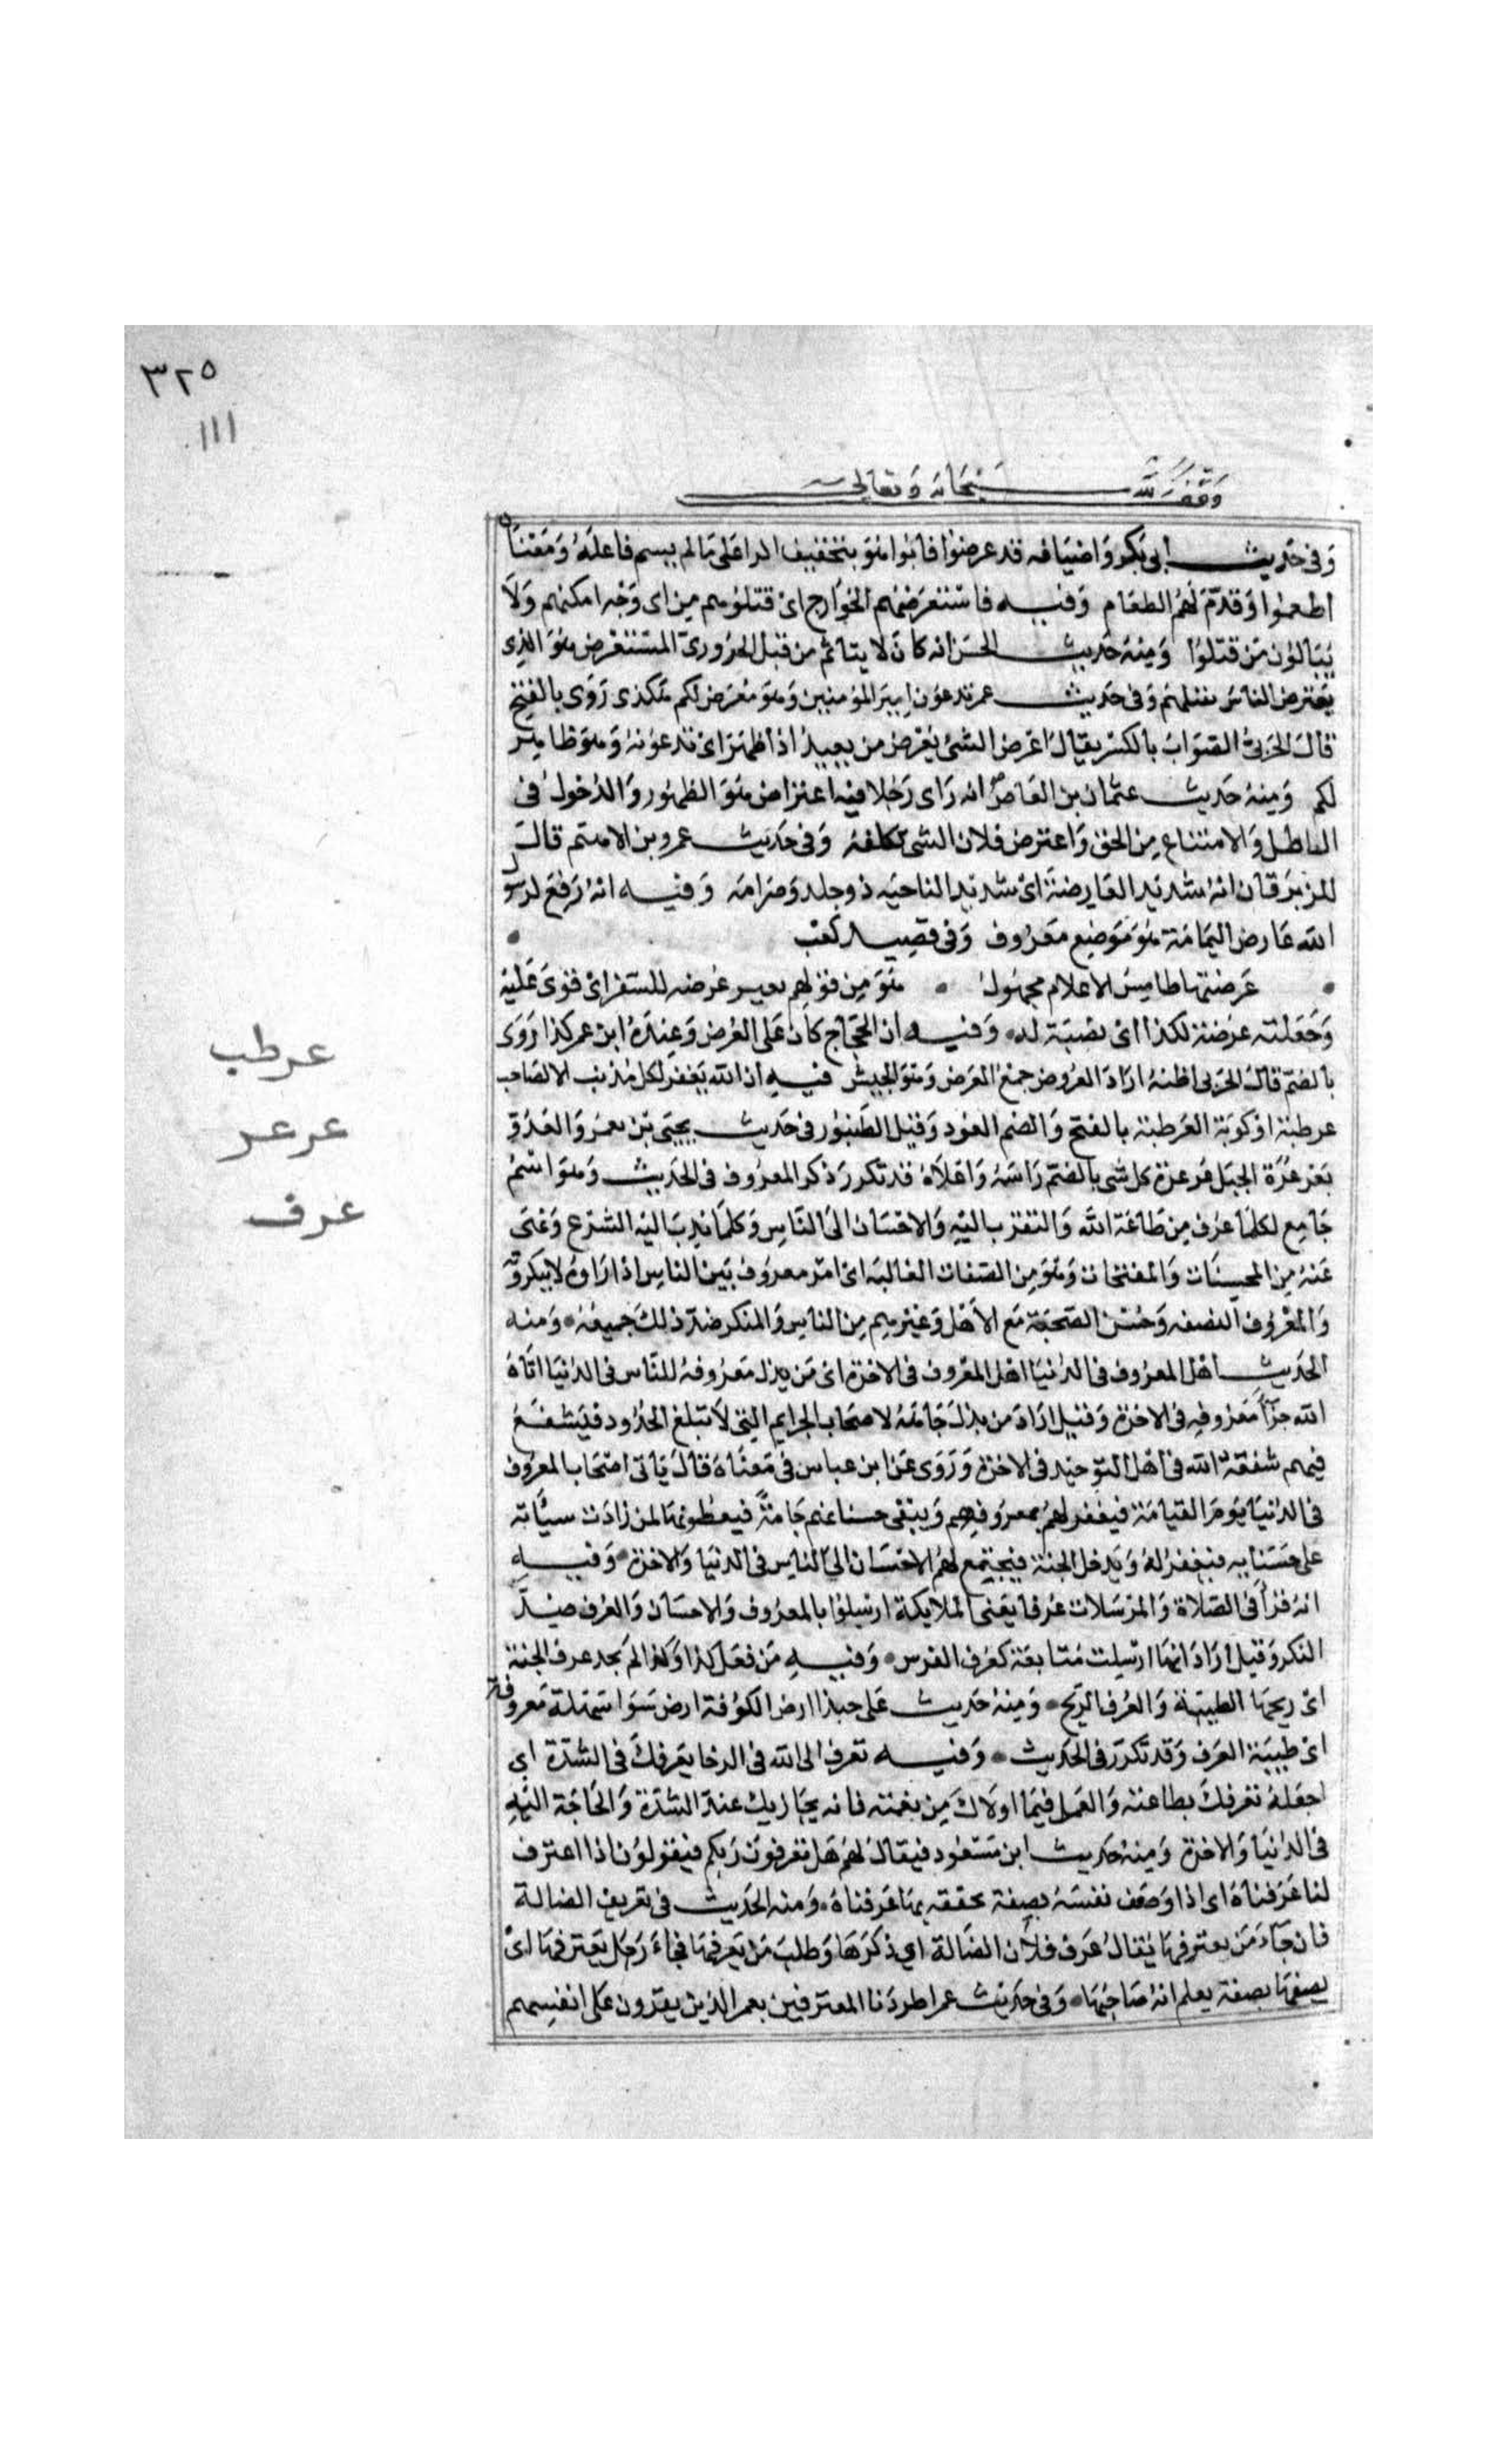 ٣٢٥
١١١
وقف لله سبحانه وتعالى
وفى حديث ابى بكر واضيافه قد عرضوا فابوا هو بتخفيف الرا على ما لم يسم فاعله ومعناه
اطعموا وقدم لهم الطعام وفيه فاستعرضهم الخوارج اى قتلوهم من اى وجه امكنهم ولا
يبالون من قتلوا ومنه حديث الحسن انه كان لا يتاثم من قتل الحرورى المستعرض هو الذى
يعترض الناس بقتلهم وفى حديث عمر تدعون امير المؤمنين وهو معرض لكم هكذى روى بالفتح
قال الحربى الصواب بالكسر يقال اعرض الشئ يعرض من بعيد اذا ظهر اى تدعونه وهو ظاهر
لكم ومنه حديث عثمان بن العاص انه راى رجلا فيه اعتراض هو الظهور والدخول فى
الباطل والامتناع من الحق واعترض فلان الشى تكلفه وفى حديث عمرو بن الاهتم قال
للزبرقان انه شديد العارضة اى شديد الناحيه ذو جلد وصرامه وفيه انه رفع لرسول
الله عارض اليمامة هو موضع معروف وفى قصيد كعب
عرضتها طامس الاعلام مجهول هو من قولهم بعير عرضه للسفر اى قوى عليه
وجعلته عرضة لكذا اى نصبة له وفيه ان الحجاج كان على العرض وعنده ابن عمر كذا روى
بالضم قال الحربى اظنه اراد العروض جمع العرض وهو الجيش فيه ان الله يغفر لكل مذنب الا لصاحب
عرطبة او كوبة العرطبة بالفتح والضم العود وقيل الطنبور فى حديث يحيى بن يعمر والعدو
بعرعرة الجبل عرعرة كل شى بالضم راسه واعلاه قد تكرر ذكر المعروف فى الحديث وهو اسم
جامع لكلما عرف من طاعة الله والتقرب اليه والاحسان الى الناس وكلما ندب اليه الشرع ونهى
عنه من المحسنات والمقبحات وهو من الصفات الغالبه اى امر معروف بين الناس اذا راوه لا ينكرونه
والمعروف النصفه وحسن الصحبة مع الاهل وغيرهم من الناس والمنكر ضد ذلك جميعه ومنه
الحديث اهل المعروف فى الدنيا اهل المعروف فى الاخرة اى من بذل معروفه للناس فى الدنيا اتاه
الله جزآ معروفه فى الاخرة وقيل اراد من بذل جاهه لاصحاب الجرايم التى لا تبلغ الحدود فيشفع
فيهم شفعه الله فى اهل التوحيد فى الاخرة وروى عن ابن عباس فى معناه قال ياتى اصحاب المعروف
فى الدنيا يوم القيامة فيغفر لهم بمعروفهم ويبقى حسناتهم جامة فيعطونها لمن زادت سيأته
على حسناته فيغفر له ويدخل الجنة فيجتمع لهم الاحسان الى الناس فى الدنيا والاخرة وفيه
انه قرأ فى الصلاة والمرسلات عرفا يعنى الملايكة ارسلوا بالمعروف والاحسان والعرف ضد
النكر وقيل اراد انها ارسلت متابعة كعرف الفرس وفيه من فعل كذا وكذا لم يجد عرف الجنة
اى ريحها الطيبة والعرف الريح ومنه حديث على حبذا ارض الكوفة ارض سوا سهلة معروفة
اى طيبة العرف وقد تكرر فى الحديث وفيه تعرف الى الله فى الرخا يعرفك فى الشدة اي
اجعله تعرفك بطاعته والعمل فيما اولاك من نعمته فانه يجازيك عند الشدة والحاجة اليه
فى الدنيا والاخرة ومنه حديث ابن مسعود فيقال لهم هل تعرفون ربكم فيقولون اذا اعترف
لنا عرفناه اى اذا وصف نفسه بصفة تحققه بها عرفناه ومنه الحديث فى تعريف الضالة
فان جاء من يعترفها يقال عرف فلان الضالة اي ذكرها وطلب من يعرفها فجاء رجل يعترفها اى
يصفها بصفة يعلم انه صاحبها وفى حديث عمر اطردنا المعترفين يعمر الذين يقرون على انفسهم
عرطب
عرعر
عرف